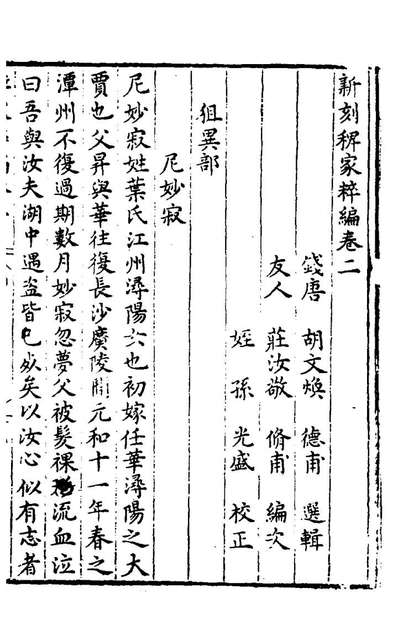 新刻稗家粹編卷二
錢唐 胡文煥 德甫 選輯
友人 莊汝敬 脩甫 編次
姪孫 光盛 校正
徂異部
尼妙寂
尼妙寂姓葉氏江州潯陽女也初嫁任華潯陽之大
賈也父昇與華往復長沙廣陵間元和十一年春之
潭州不復過期數月妙寂忽夢父被髮裸流血泣
曰吾與汝夫湖中遇盜皆已死矣以汝心似有志者